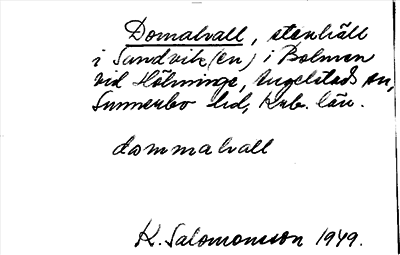 Domalvall, stenhäll
i Sandvik(en) i Bolmen
vid Hölminge, Angelstads sn,
Sunnerbo hd, Krb. län.
dommalvall
K. Salomonsson 1949.